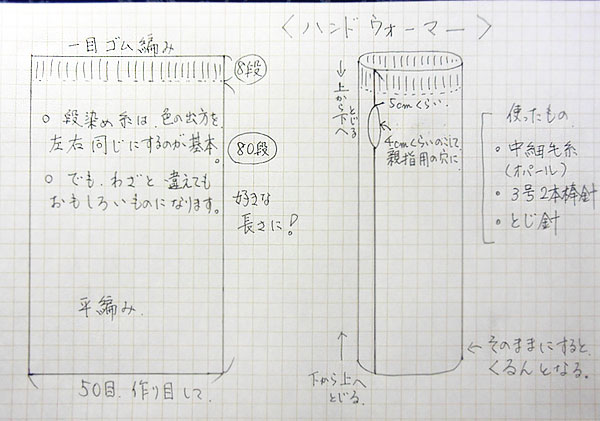 〈ハンドウォーマー〉
一目ゴム編み
8段
○ 段染め糸は 色の出方を
左右同じにするのが基本。
○ でも、わざと違えても
おもしろいものになります。
80段
好きな
長さに!
平編み
50目 作り目して
↓上から下へとじる
5cmくらい
4cmくらいのこして
親指用の穴に
下から上へ
とじる
←そのままにすると
くるんとなる。
使ったもの
・中細毛糸
(オパール)
・3号2本棒針
・とじ針